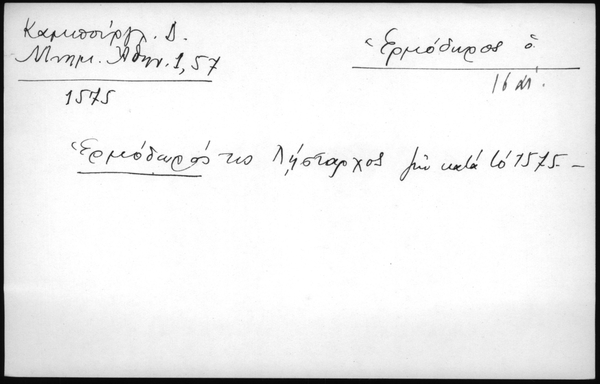 Καμπούργλ. Δ.
Μνημ. Ἀθην. 1, 57
1575
Ἑρμόδωρος ὁ
16 αἰ.
Ἑρμόδωρός τις Λῄσταρχος ζῶν κατά τό 1575 –